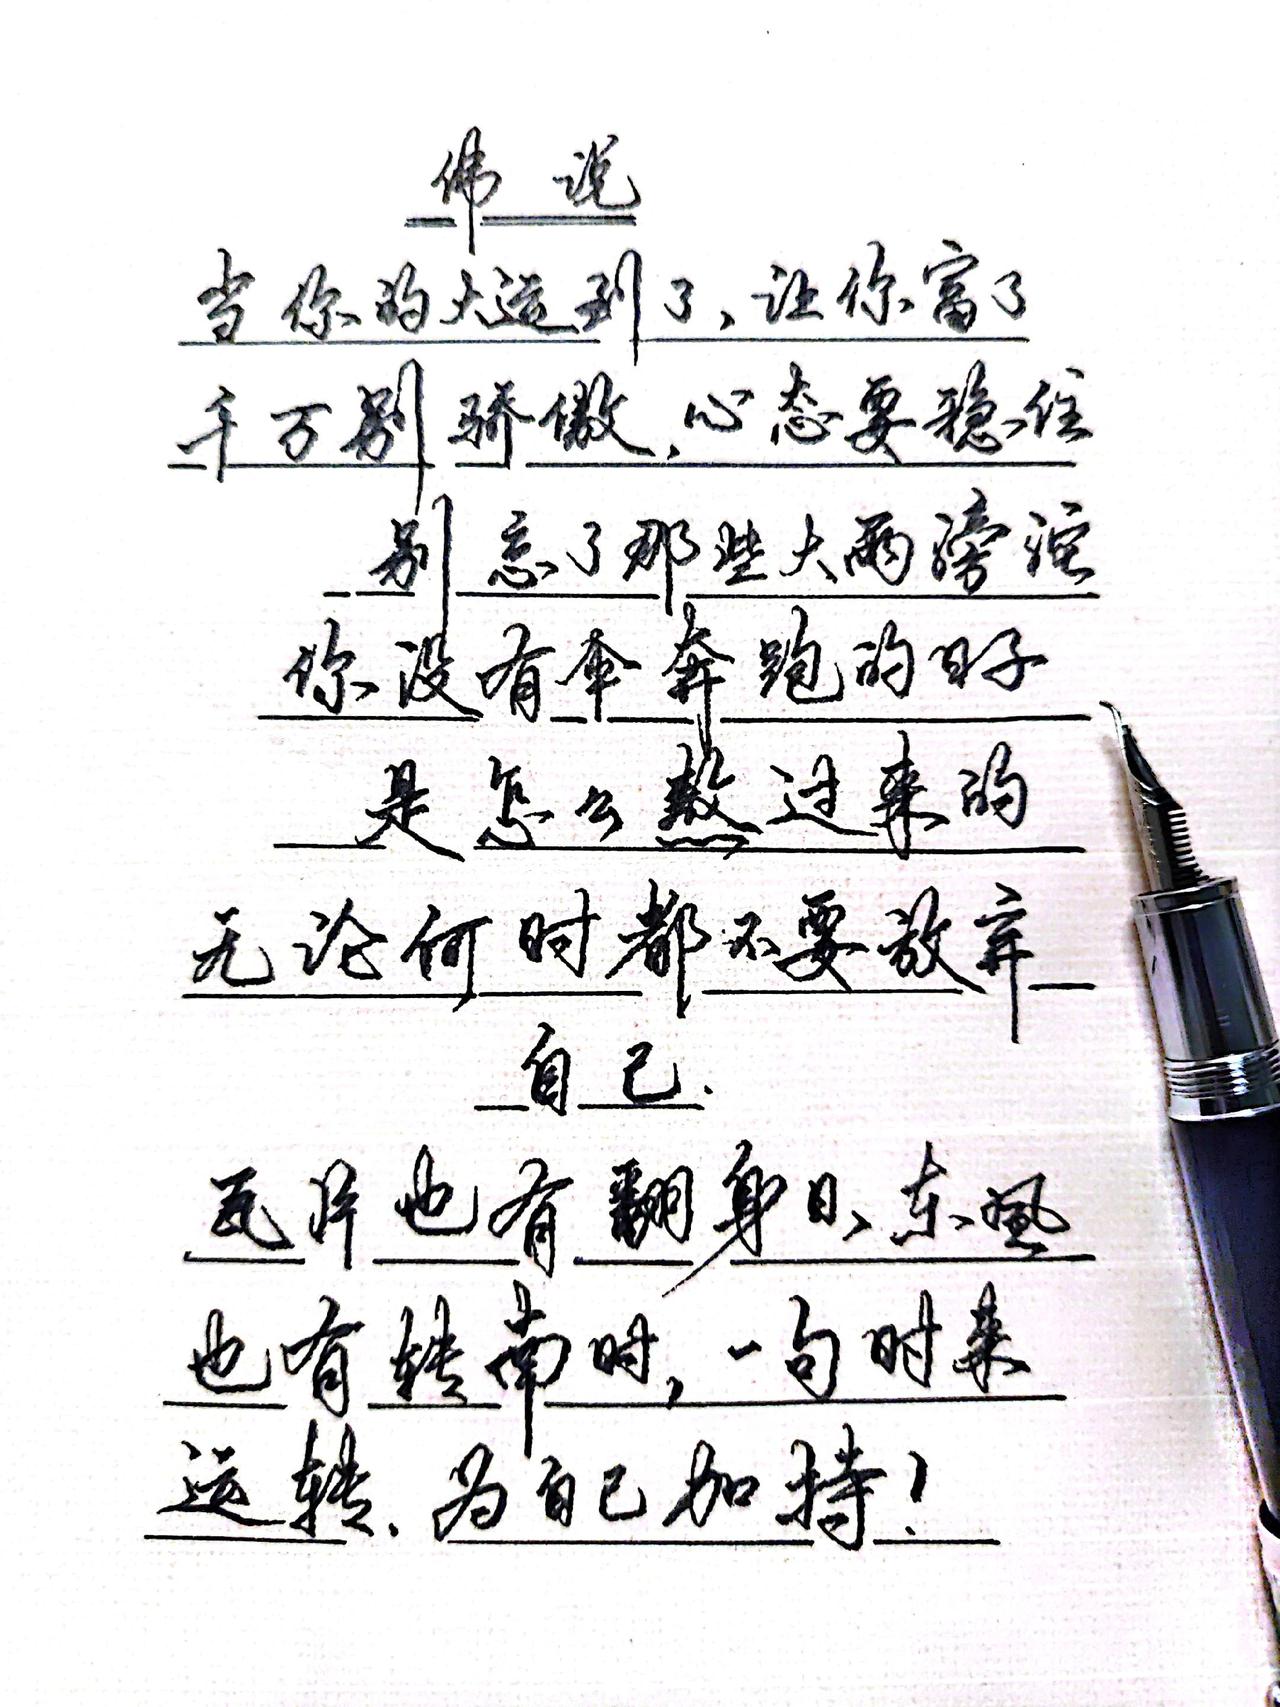 佛说
当你的大运到了、让你富了
千万别骄傲、心态要稳住
别忘了那些大雨滂沱
你没有伞奔跑的日子
是怎么熬过来的
无论何时都不要放弃
自己.
瓦片也有翻身日、东風
也有转南时,一句时来
运转、为自己加持!